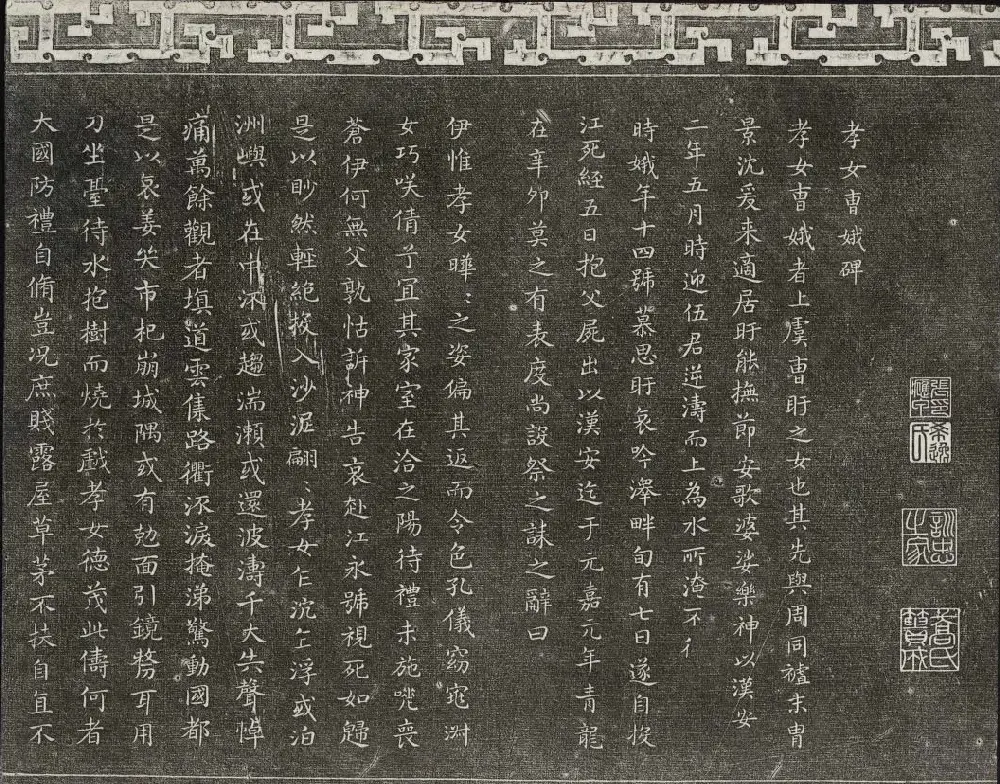 訓忠之家
孝女曹娥碑
孝女曹娥者上虞曹盱之女也其先與周同祖末胄
景沈爰来適居盱能撫節安歌婆娑樂神以漢安
二年五月時迎伍君逆濤而上為水所淹不得
時娥年十四號慕思盱哀吟澤畔旬有七日遂自投
江死經五日抱父屍出以漢安迄于元嘉元年青龍
在辛卯莫之有表度尚設祭之誄之辭曰
伊惟孝女曄〻之姿偏其返而令色孔儀窈窕淑
女巧咲倩兮宜其家室在洽之陽待禮未施嗟喪
蒼伊何無父孰怙訴神告哀赴江永號視死如歸
是以眇然輕絶投入沙泥翩〻孝女乍沈乍浮或泊
洲嶼或在中流或趨湍瀬或還波濤千夫失聲悼
痛萬餘觀者填道雲集路衢泝淚掩涕驚動國都
是以哀姜哭市杞崩城隅或有勉面引鏡剺耳用
刀坐臺待水抱樹而燒於戯孝女德茂此儔何者
大國防禮自脩豈况庶賤露屋草茅不扶自直不